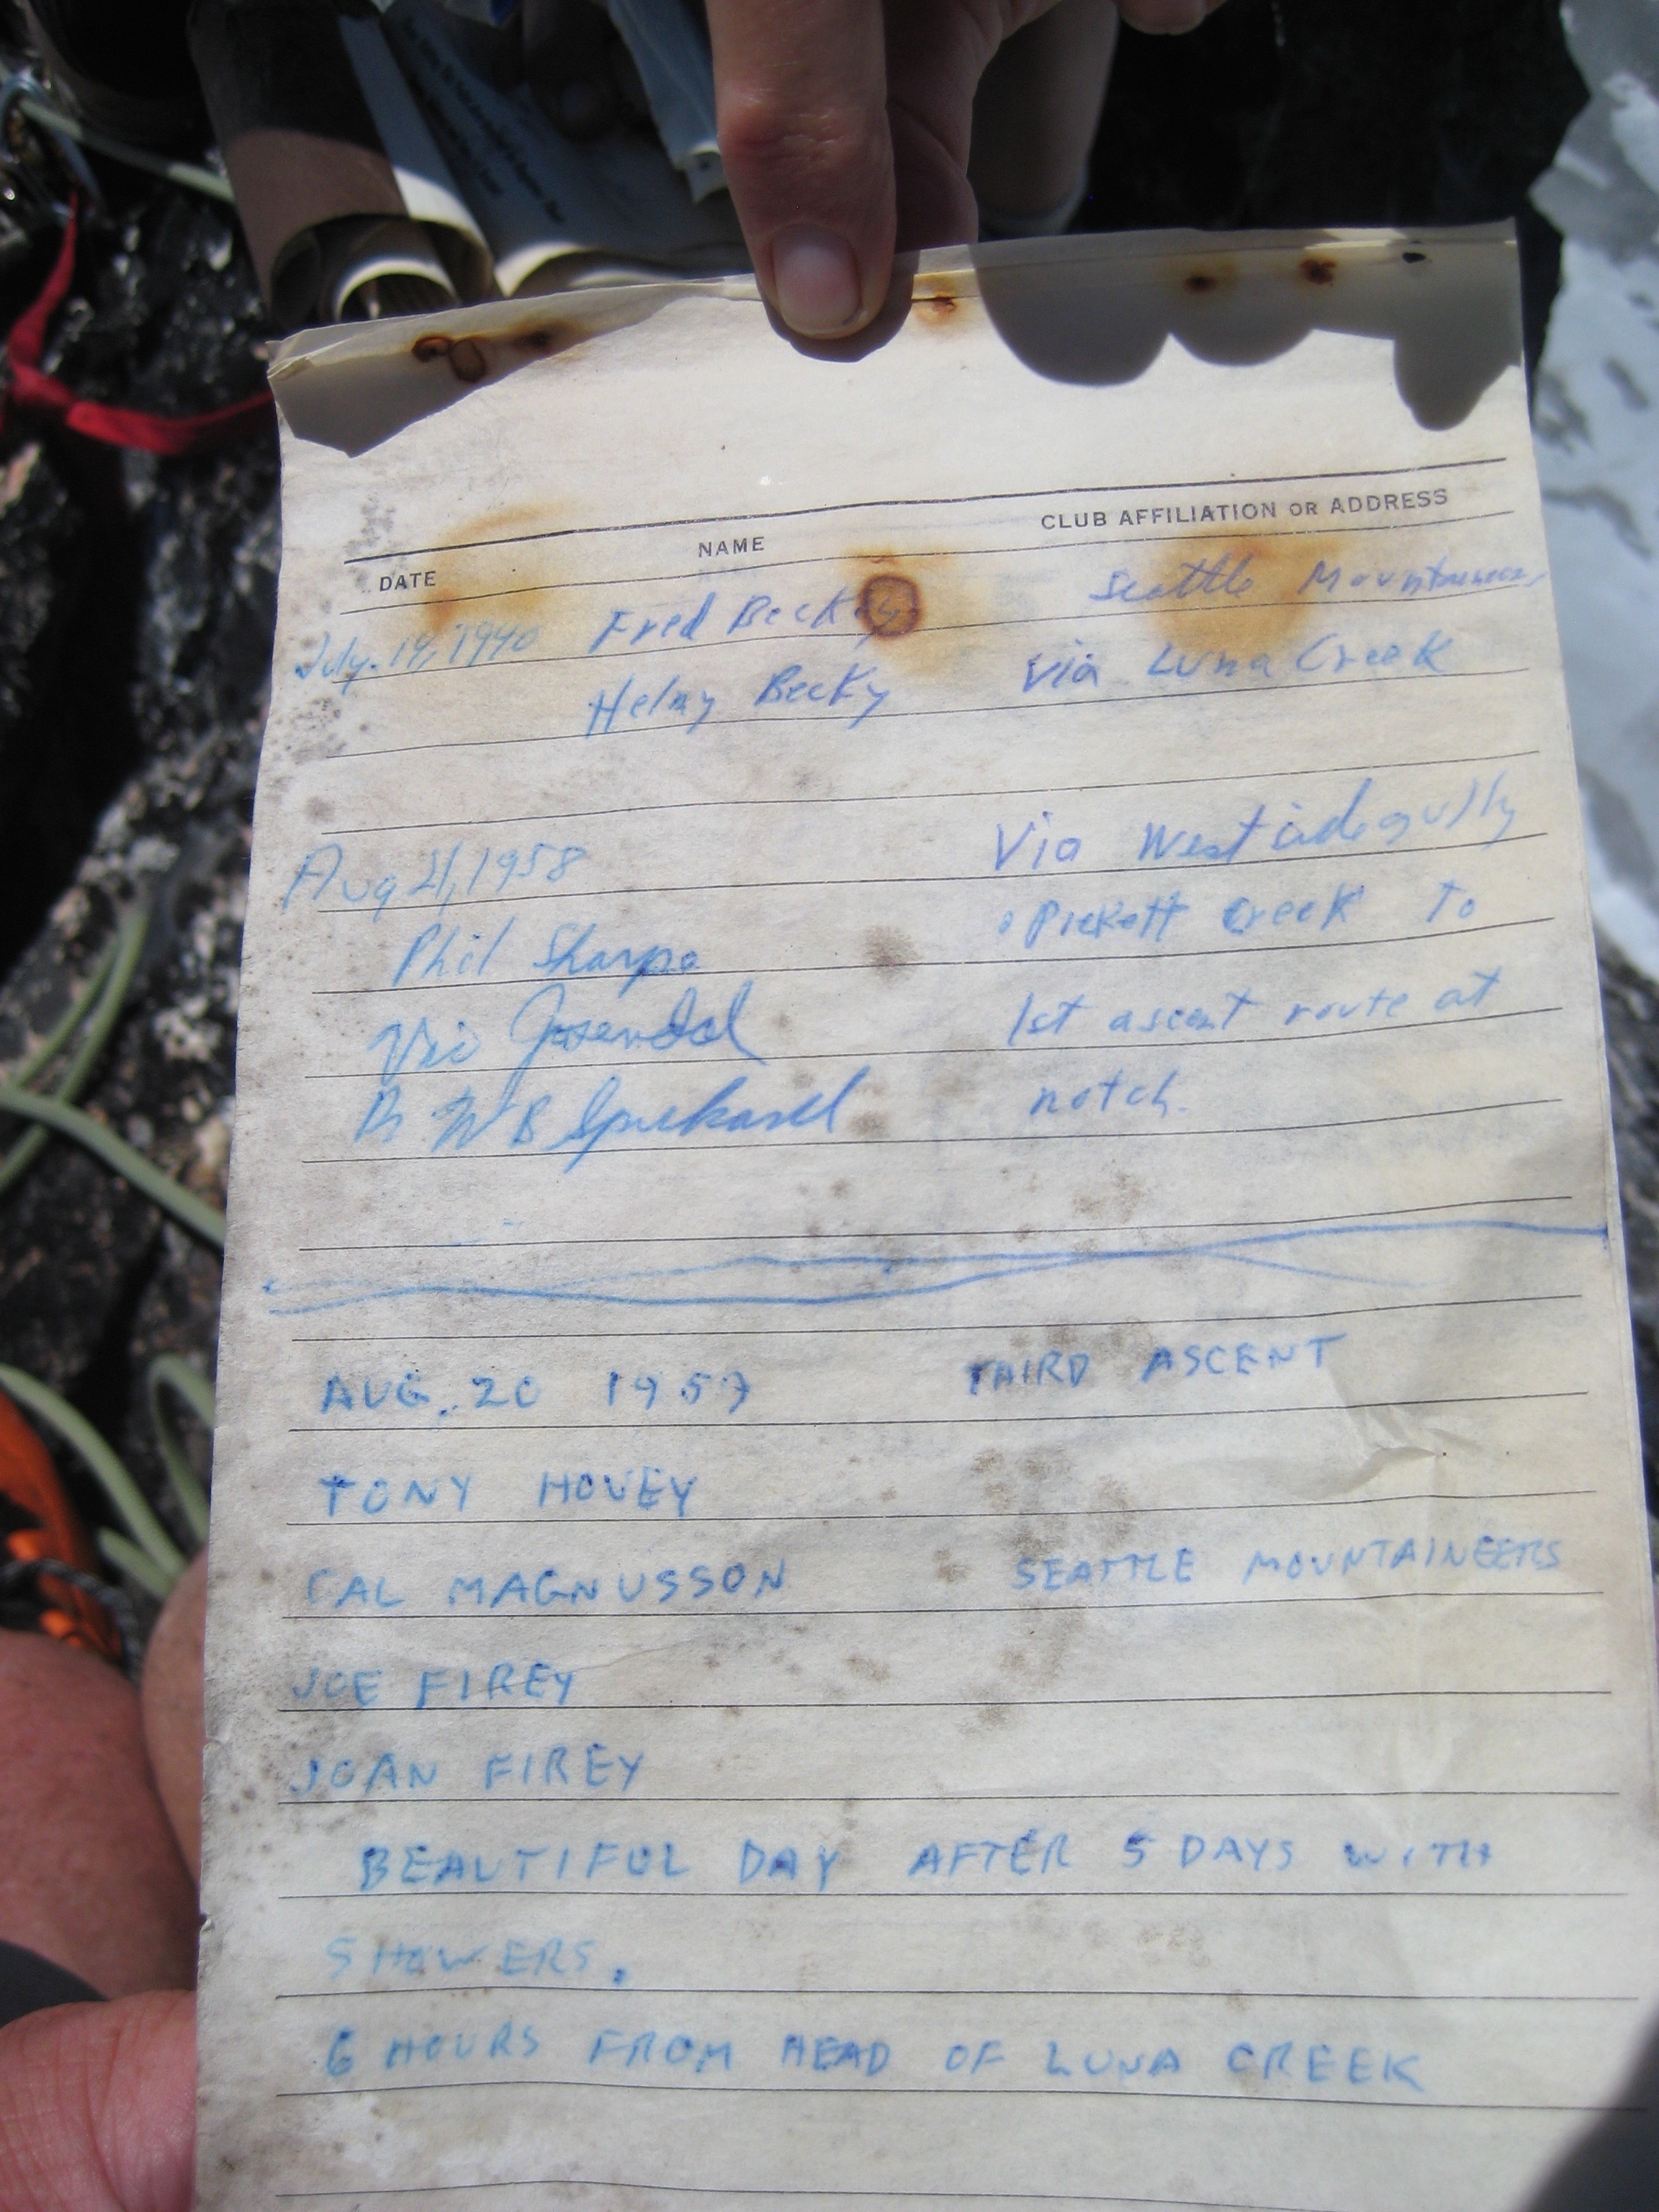 DATE NAME CLUB AFFILIATION OR ADDRESS
July. 19, 1940 Fred Becky Seattle Mountaineers
Helmy Becky Via Luna Creek
Aug 21, 1958 Via West side gully
Phil Sharpe Pickett Creek To
Vic Josendal 1st ascent route at
notch.
AUG. 20 1959 THIRD ASCENT
TONY HOVEY
CAL MAGNUSSON SEATTLE MOUNTAINEERS
JOE FIREY
JOAN FIREY
BEAUTIFUL DAY AFTER 5 DAYS WITH
SHOWERS.
6 HOURS FROM HEAD OF LUNA CREEK